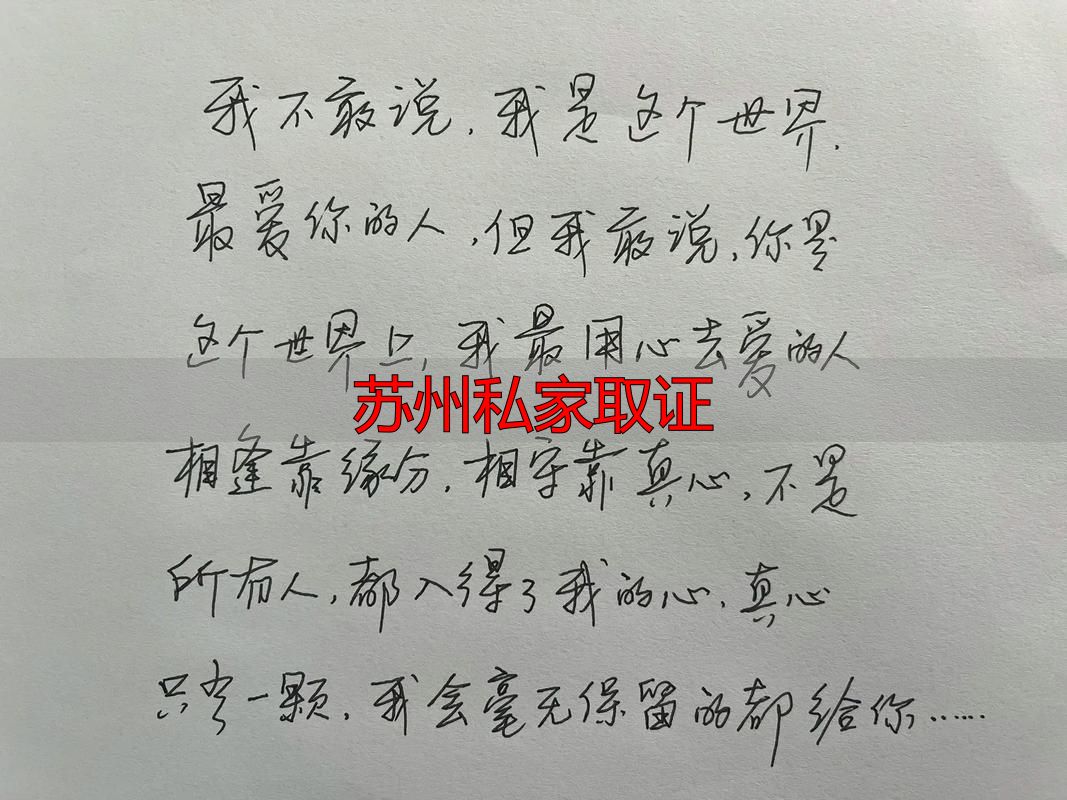 我不敢说,我是这个世界.
最爱你的人,但我敢说,你是
这个世界上,我最用心去爱的人
苏州私家取证
相逢靠缘分,相守靠真心,不是
所有人,都入得了我的心,真心
只有一颗,我会毫无保留的都给你……